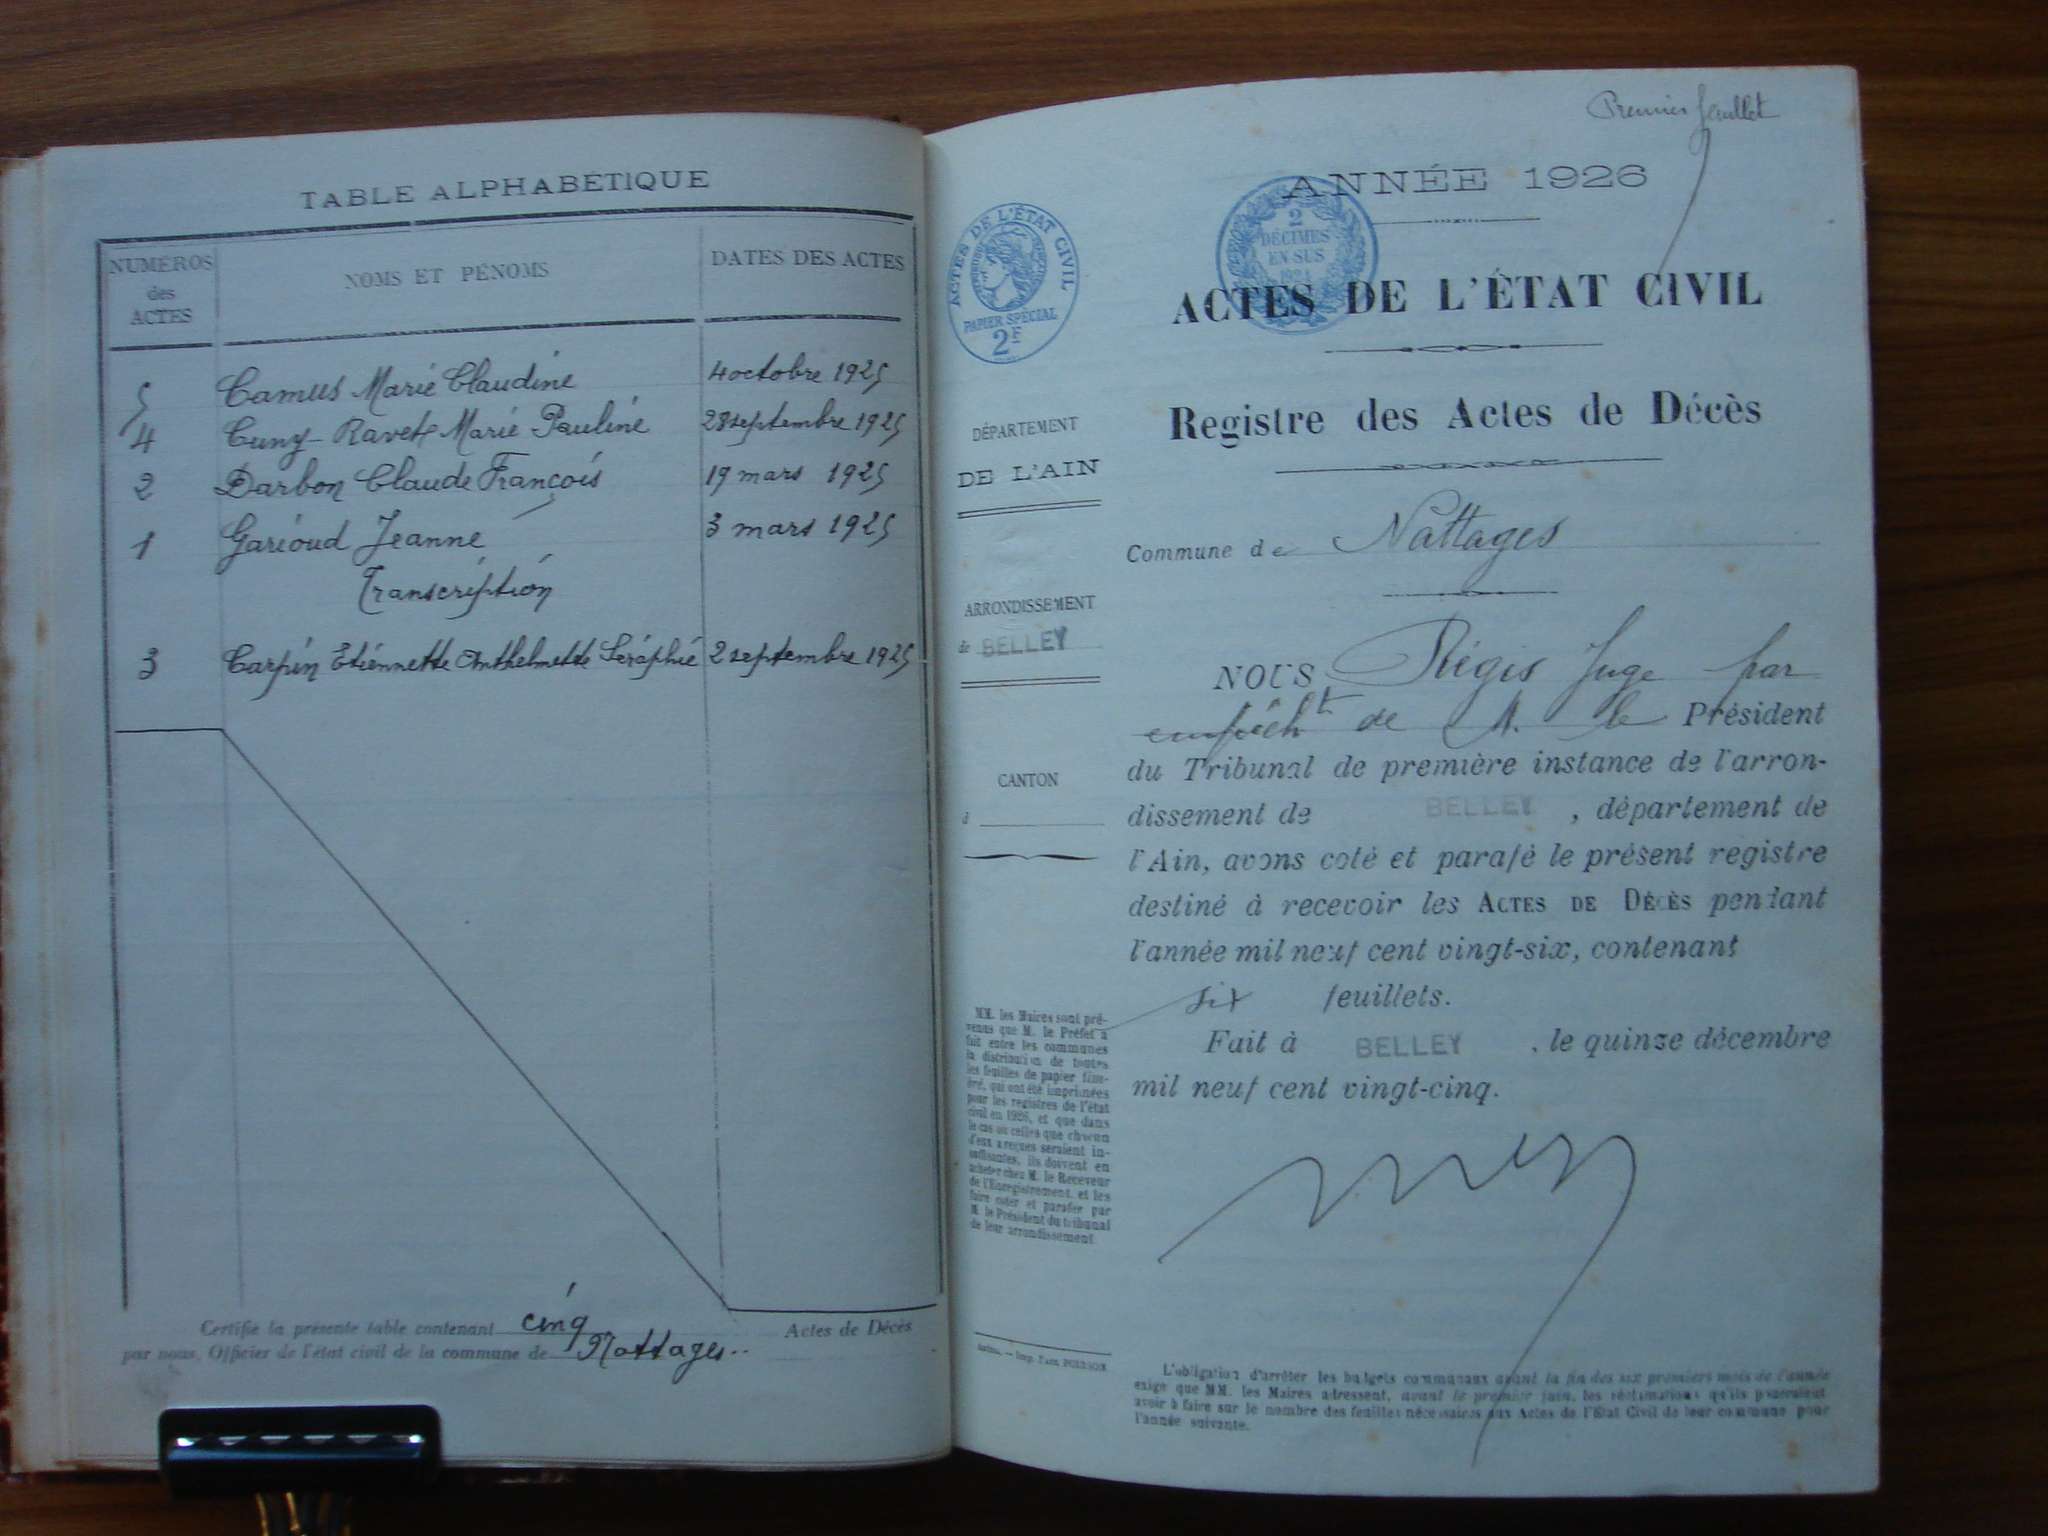 TABLE ALPHABÉTIQUE
NUMÉROS des ACTES
NOMS ET PÉNOMS
DATES DES ACTES
5 Camus Marie Claudine 4 octobre 1925
4 Cuny-Ravet Marie Pauline 28 septembre 1925
2 Darbon Claude François 19 mars 1925
1 Garioud Jeanne 3 mars 1925
Transcription
3 Carpin Etiennette Anthelmette Séraphie 2 septembre 1925
Certifié la présente table contenant cinq Actes de Décès
par nous, Officier de l'état civil de la commune de Nattages..
Premier feuillet
ANNÉE 1926
ACTES DE L'ÉTAT CIVIL
PAPIER SPÉCIAL
2F
2
DÉCIMES
EN SUS
1924
ACTES DE L'ÉTAT CIVIL
Registre des Actes de Décès
DÉPARTEMENT
DE L'AIN
Commune de Nattages
ARRONDISSEMENT
de BELLEY
CANTON
d
NOUS Régis Juge par
empêcht de M. le Président
du Tribunal de première instance de l'arron-
dissement de BELLEY, département de
l'Ain, avons coté et parafé le présent registre
destiné à recevoir les ACTES DE DÉCÈS pendant
l'année mil neuf cent vingt-six, contenant
six feuillets.
Fait à BELLEY, le quinze décembre
mil neuf cent vingt-cinq.
MM. les Maires sont pré-
venus que M. le Préfet a
fait entre les communes
la distribution de toutes
les feuilles de papier tim-
bré, qui ont été imprimées
pour les registres de l'état
civil en 1926, et que dans
le cas où celles que chacun
d'eux a reçues seraient in-
suffisantes, ils doivent en
acheter chez M. le Receveur
de l'Enregistrement, et les
faire coter et parafer par
M. le Président du tribunal
de leur arrondissement
L'obligation d'arrêter les budgets communaux avant la fin des six premiers mois de l'année
exige que MM. les Maires adressent, avant le premier juin, les réclamations qu'ils pourraient
avoir à faire sur le nombre des feuilles nécessaires aux Actes de l'État Civil de leur commune pour
l'année suivante.